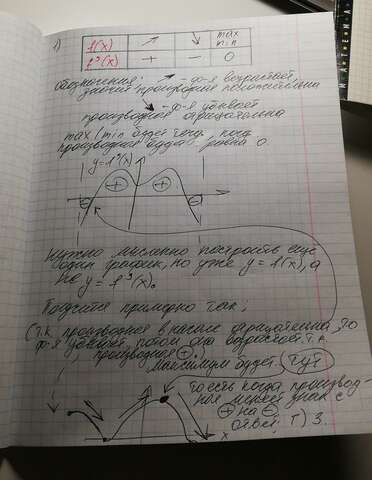 1)
f(x) ↗ ↘ max min
f'(x) + − 0
обозначения: ↗ - ф-я возрастает,
значит производная положительна
↘ - ф-я убывает
производная отрицательна
max/min будет тогда, когда
производная будет равна 0.
y=f'(x)
⊖ ⊕ ⊕ ⊖
Нужно мысленно построить еще
один график, но уже y=f(x), а
не y=f'(x).
Получится примерно так:
(т.к. производная в начале отрицательна, то
ф-я убывает, потом она возрастает т.к
производная ⊕.
Максимум будет тут
То есть когда производ-
ная меняет знак с
⊕ на ⊖
x
ответ: Г) 3.
МАТЕМ